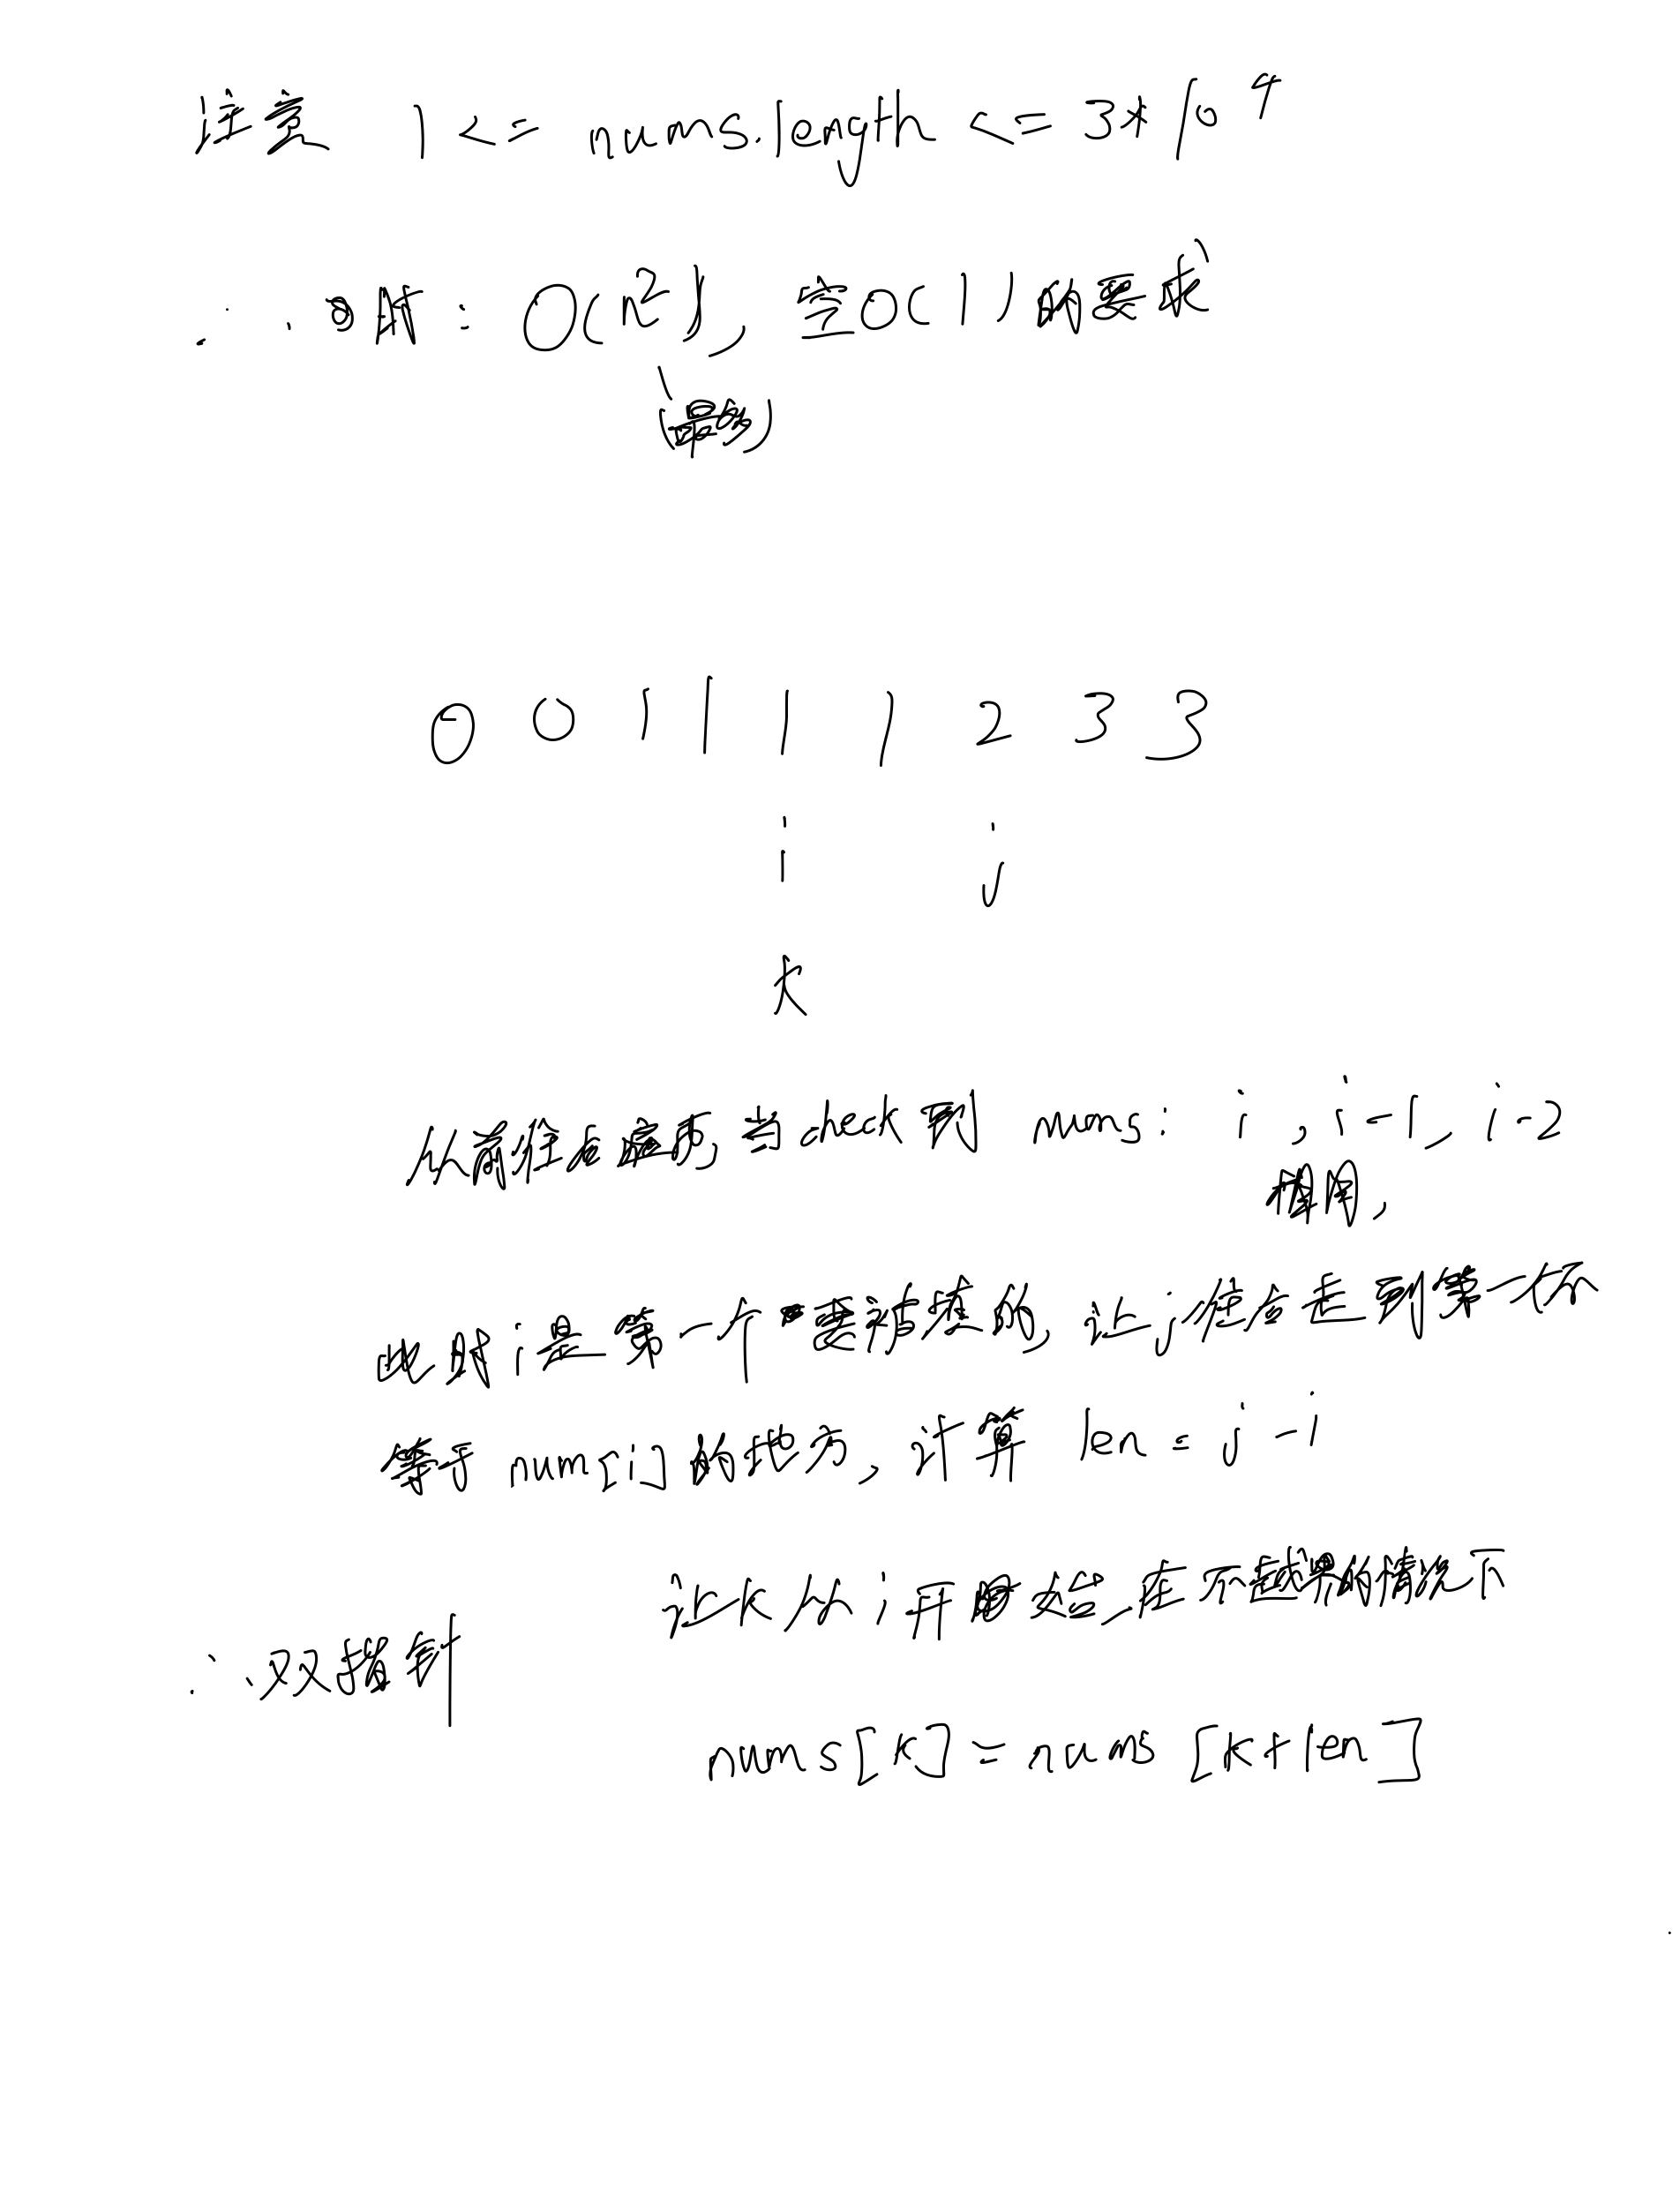 注意 1 <= nums.length <= 3*10^4
∴ 时: O(n²), 空O(1)的要求
(最多)
0 0 1 1 1 1 2 3 3
i j
k
从前往后遍历,当check到 nums: i, i-1, i-2
相同,
此时i是第一个要被覆盖的, 让j往后走到第一个不
等于 nums[i]的地方, 计算 len = j - i
让k从i开始, 在不越界的情况下
∴ 双指针
nums[k] = nums [k+len]